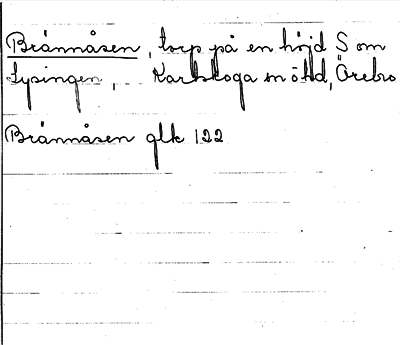 Brännåsen, torp på en höjd S om
Lysingen, Karlskoga sn ö hd, Örebro
Brännåsen glk 122